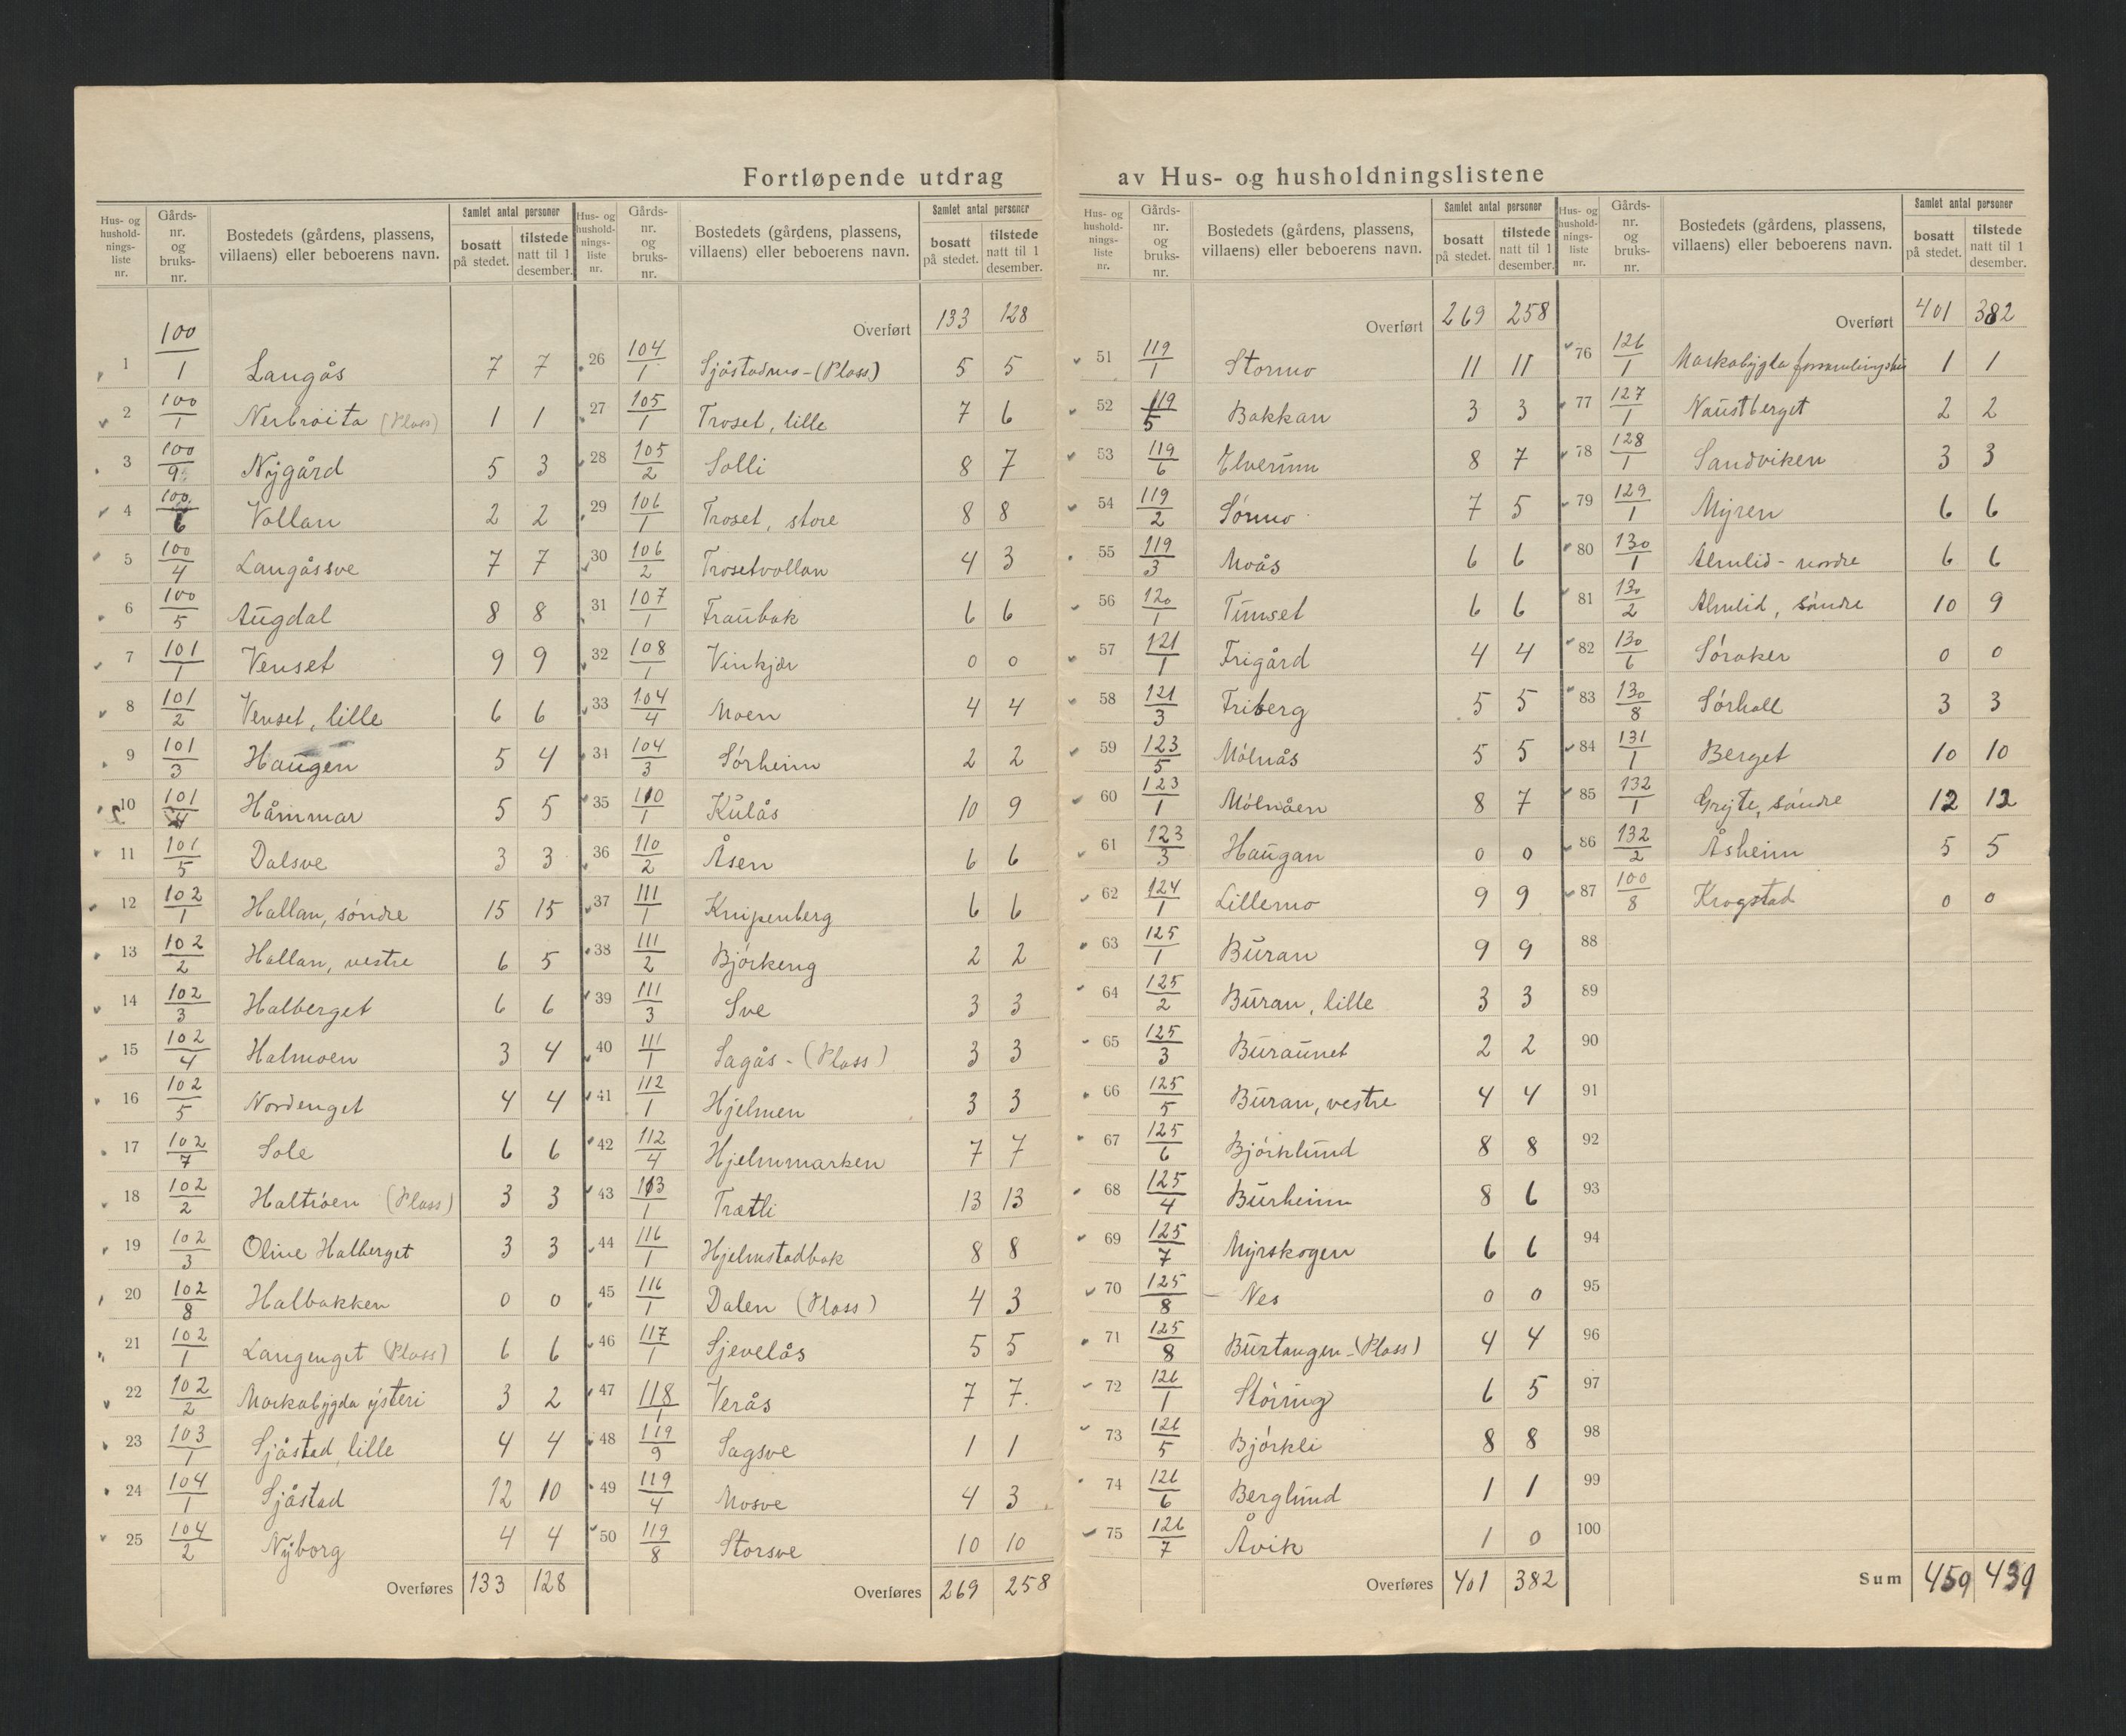 Fortløpende utdrag av Hus- og husholdningslistene
Hus- og hushold-nings-liste nr. Gårds-nr. og bruks-nr. Bostedets (gårdens, plassens, villaens) eller beboerens navn. Samlet antal personer bosatt på stedet. tilstede natt til 1 desember.
1 100/1 Langås 7 7
2 100/1 Nerbrøita (Plass) 1 1
3 100/9 Nygård 5 3
4 100/6 Vollan 2 2
5 100/4 Langåssve 7 7
6 100/5 Augdal 8 8
7 101/1 Venset 9 9
8 101/2 Venset, lille 6 6
9 101/3 Haugen 5 4
10 101/4 Håmmar 5 5
11 101/5 Dalsve 3 3
12 102/1 Hallan, søndre 15 15
13 102/2 Hallan, vestre 6 5
14 102/3 Halberget 6 6
15 102/4 Halmoen 3 4
16 102/5 Nordenget 4 4
17 102/7 Sole 6 6
18 102/2 Haltrøen (Plass) 3 3
19 102/3 Oline Halberget 3 3
20 102/8 Halbakken 0 0
21 102/1 Langenget (Plass) 6 6
22 102/2 Markabygda ysteri 3 2
23 103/1 Sjåstad, lille 4 4
24 104/1 Sjåstad 12 10
25 104/2 Nyborg 4 4
Overføres 133 128
Hus- og hushold-nings-liste nr. Gårds-nr. og bruks-nr. Bostedets (gårdens, plassens, villaens) eller beboerens navn. Samlet antal personer bosatt på stedet. tilstede natt til 1 desember.
Overført 133 128
26 104/1 Sjåstadmo - (Plass) 5 5
27 105/1 Troset, lille 7 6
28 105/2 Solli 8 7
29 106/1 Troset, store 8 8
30 106/2 Trosetvollan 4 3
31 107/1 Fraubak 6 6
32 108/1 Vinkjær 0 0
33 104/4 Moen 4 4
34 104/3 Sørheim 2 2
35 110/1 Kulås 10 9
36 110/2 Åsen 6 6
37 111/1 Knipenberg 6 6
38 111/2 Bjørkeng 2 2
39 111/3 Sve 3 3
40 111/1 Sagås - (Plass) 3 3
41 112/1 Hjelmen 3 3
42 112/4 Hjelmmarken 7 7
43 113/1 Trætli 13 13
44 116/1 Hjelmstadbak 8 8
45 116/1 Dalen (Plass) 4 3
46 117/1 Sjevelås 5 5
47 118/1 Verås 7 7
48 119/9 Sagsve 1 1
49 119/4 Mosve 4 3
50 119/8 Storsve 10 10
Overføres 269 258
Hus- og hushold-nings-liste nr. Gårds-nr. og bruks-nr. Bostedets (gårdens, plassens, villaens) eller beboerens navn. Samlet antal personer bosatt på stedet. tilstede natt til 1 desember.
Overført 269 258
51 119/1 Stormo 11 11
52 119/5 Bakkan 3 3
53 119/6 Elverum 8 7
54 119/2 Sørmo 7 5
55 119/3 Moås 6 6
56 120/1 Tumset 6 6
57 121/1 Frigård 4 4
58 121/3 Friberg 5 5
59 123/5 Mølnås 5 5
60 123/1 Mølnåen 8 7
61 123/3 Haugan 0 0
62 124/1 Lillemo 9 9
63 125/1 Buran 9 9
64 125/2 Buran, lille 3 3
65 125/3 Buraunet 2 2
66 125/5 Buran, vestre 4 4
67 125/6 Bjørklund 8 8
68 125/4 Burheim 8 6
69 125/7 Myrskogen 6 6
70 125/8 Nes 0 0
71 125/8 Burtangen - (Plass) 4 4
72 126/1 Støring 6 5
73 126/5 Bjørkli 8 8
74 126/6 Berglund 1 1
75 126/7 Åvik 1 0
Overføres 401 382
Hus- og hushold-nings-liste nr. Gårds-nr. og bruks-nr. Bostedets (gårdens, plassens, villaens) eller beboerens navn. Samlet antal personer bosatt på stedet. tilstede natt til 1 desember.
Overført 401 382
76 126/1 Markabygda forsamlingshus 1 1
77 127/1 Naustberget 2 2
78 128/1 Sandviken 3 3
79 129/1 Myren 6 6
80 130/1 Almlid - nordre 6 6
81 130/2 Almlid, søndre 10 9
82 130/6 Søraker 0 0
83 130/8 Sørhall 3 3
84 131/1 Berget 10 10
85 132/1 Grejte, søndre 12 12
86 132/2 Åsheim 5 5
87 100/8 Krogstad 0 0
88
89
90
91
92
93
94
95
96
97
98
99
100
Sum 459 439